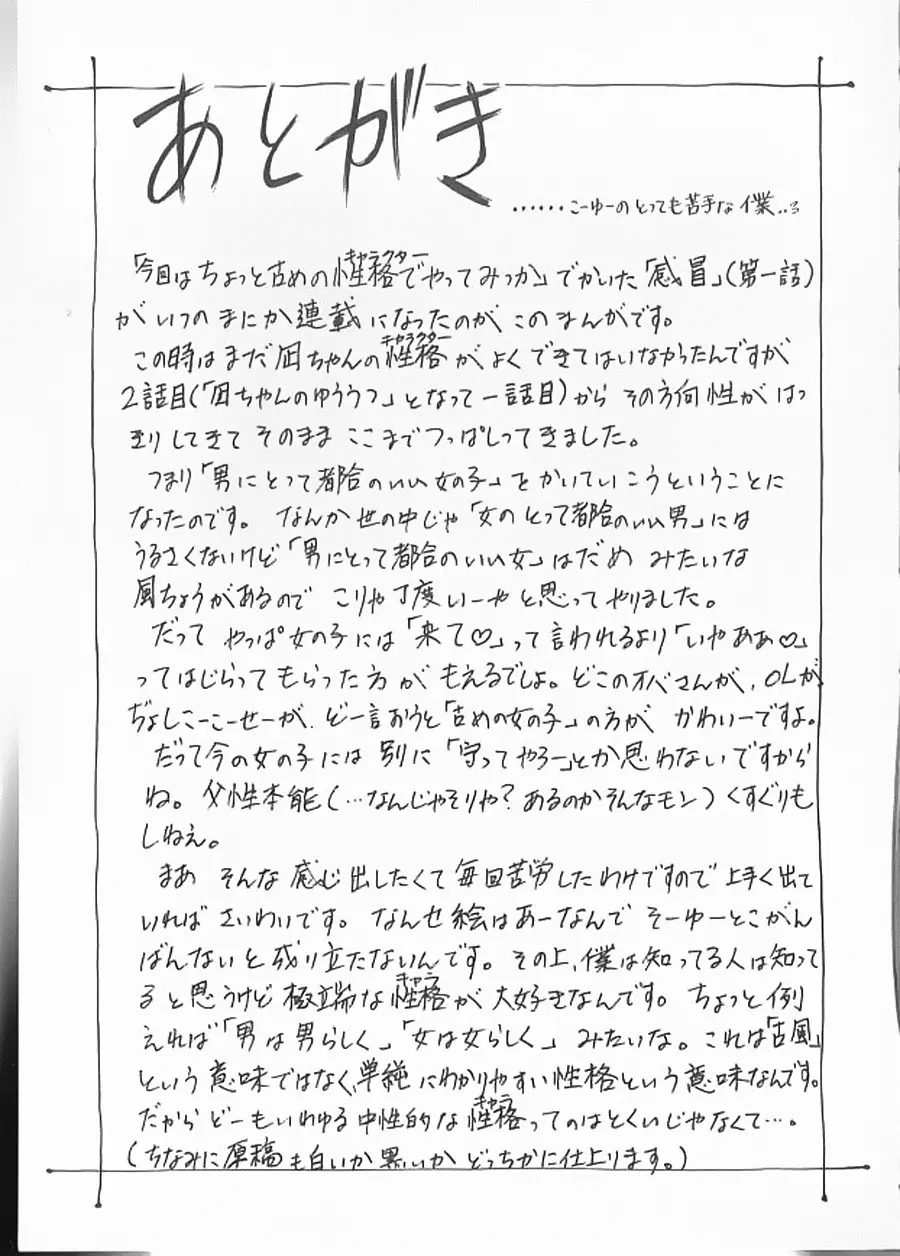 あとがき
……こーゆーのとっても苦手な僕..3
「今回はちょっと古めの性格でやってみっか」でかいた「感冒」(第一話)
がいつのまにか連載になったのがこのまんがです。
この時はまだ凪ちゃんの性格がよくできてはいなかったんですが
2話目(「凪ちゃんのゆううつ」となって一話目)からその方向性がはっ
きりしてきてそのままここまでつっぱしってきました。
つまり「男にとって都合のいい女の子」をかいていこうということに
なったのです。なんか世の中じゃ「女のとって都合のいい男」には
うるさくないけど「男にとって都合のいい女」はだめみたいな
風ちょうがあるのでこりゃ丁度いーやと思ってやりました。
だってやっぱ女の子には「来て♡」って言われるより「いやああ♡」
ってはじらってもらった方がもえるでしょ。どこのオバさんが、OLが
ぢょしこーこーせーが、ど一言おうと「古めの女の子」の方がかわいーですよ。
だって今の女の子には別に「守ってやろー」とか思わないですから
ね。父性本能(…なんじゃそりゃ?あるのかそんなモン)くすぐりも
しねえ。
まあそんな感じ出したくて毎回苦労したわけですので上手く出て
いればさいわいです。なんせ絵はあーなんでそーゆーとこがん
ばんないと成り立たないんです。その上、僕は知ってる人は知って
ると思うけど極端な性格が大好きなんです。ちょっと例
えれば「男は男らしく」「女は女らしく」みたいな。これは「古風」
という意味ではなく、単純にわかりやすい性格という意味なんです。
だからどーもいわゆる中性的な性格ってのはとくいじゃなくて…。
(ちなみに原稿も白いか黒いかどっちかに仕上ります。)
キャラクター
キャラクター
キャラ
キャラ